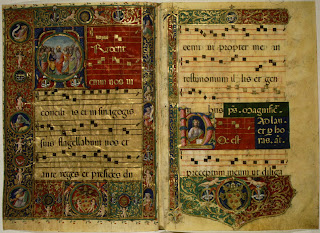 Tradent
enim uos in
conciliis et in sinagogis
suis flagellabunt uos et
ante reges et presides du
cemini propter me in
testimonium illis et gen
tibus ps. magnificat
Ad lau
et p ho
ras. añ.
Hoc est
preceptum meum ut diliga